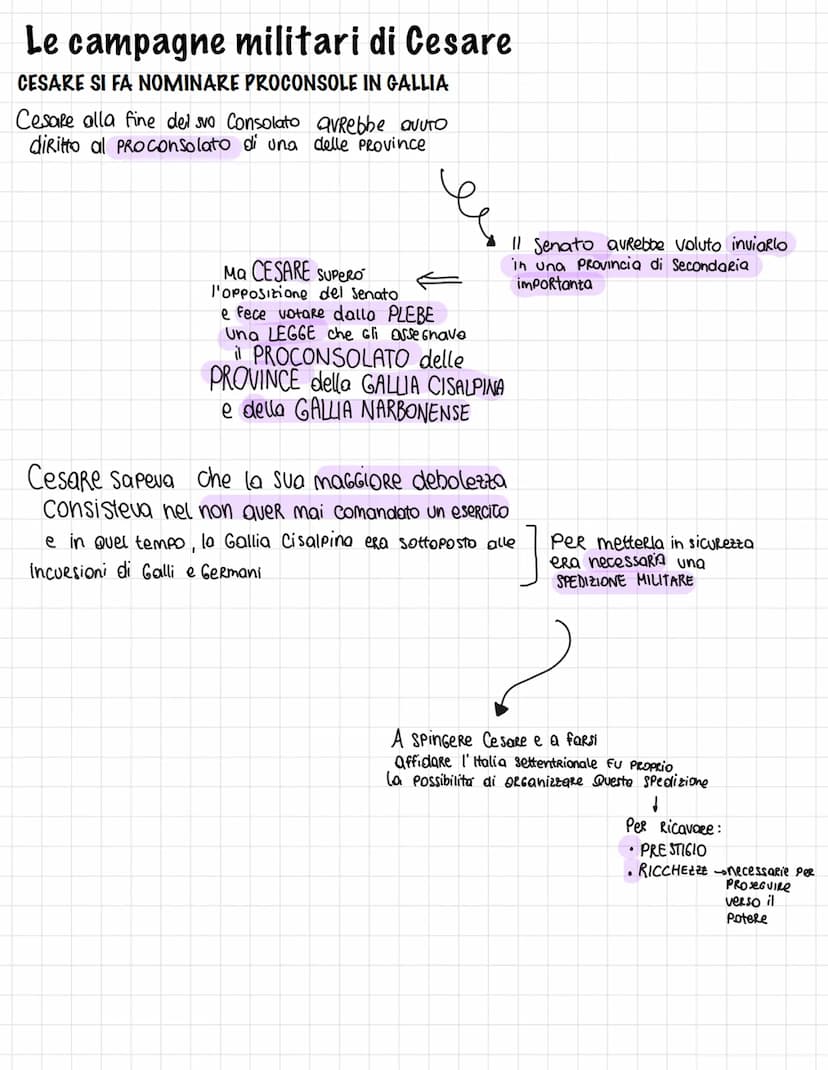 Le campagne militari di Cesare
CESARE SI FA NOMINARE PROCONSOLE IN GALLIA
Cesare alla fine del suo Consolato avrebbe avuto
diritto al PROCONSOLATO di una delle Province
Il Senato avrebbe voluto inviarlo
in una Provincia di Secondaria
importanta
Ma CESARE superò
l'opposizione del Senato
e fece votare dalla PLEBE
una LEGGE che gli assegnava
il PROCONSOLATO delle
PROVINCE della GALLIA CISALPINA
e della GALLIA NARBONENSE
Cesare sapeva che la sua maggiore debolezza
consisteva nel non aver mai comandato un esercito
e in quel tempo, la Gallia Cisalpina era sottoposta alle
incursioni di Galli e Germani
Per metterla in sicurezza
era necessaria una
SPEDIZIONE MILITARE
A spingere Cesare e a farsi
affidare l'Italia settentrionale fu proprio
la possibilità di organizzare questa spedizione
Per ricavare:
• PRESTIGIO
• RICCHEZZE → necessarie per
proseguire
verso il
potere